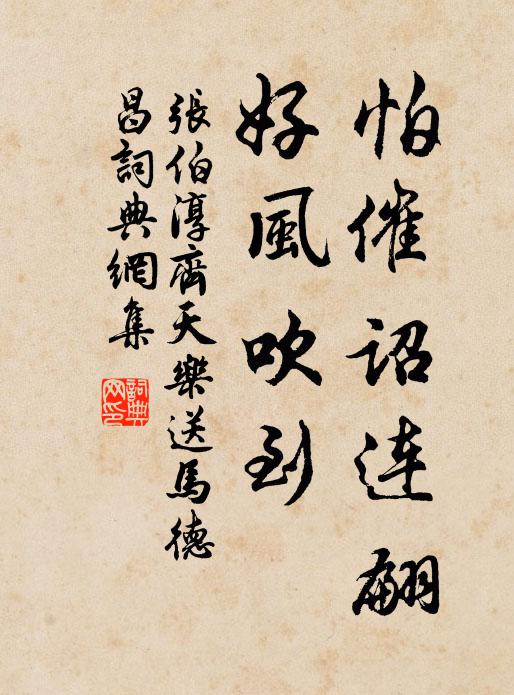 怕催詔連翩
好風吹到
張伯淳齊天樂送馬德
昌詞典網集
詞典
网印